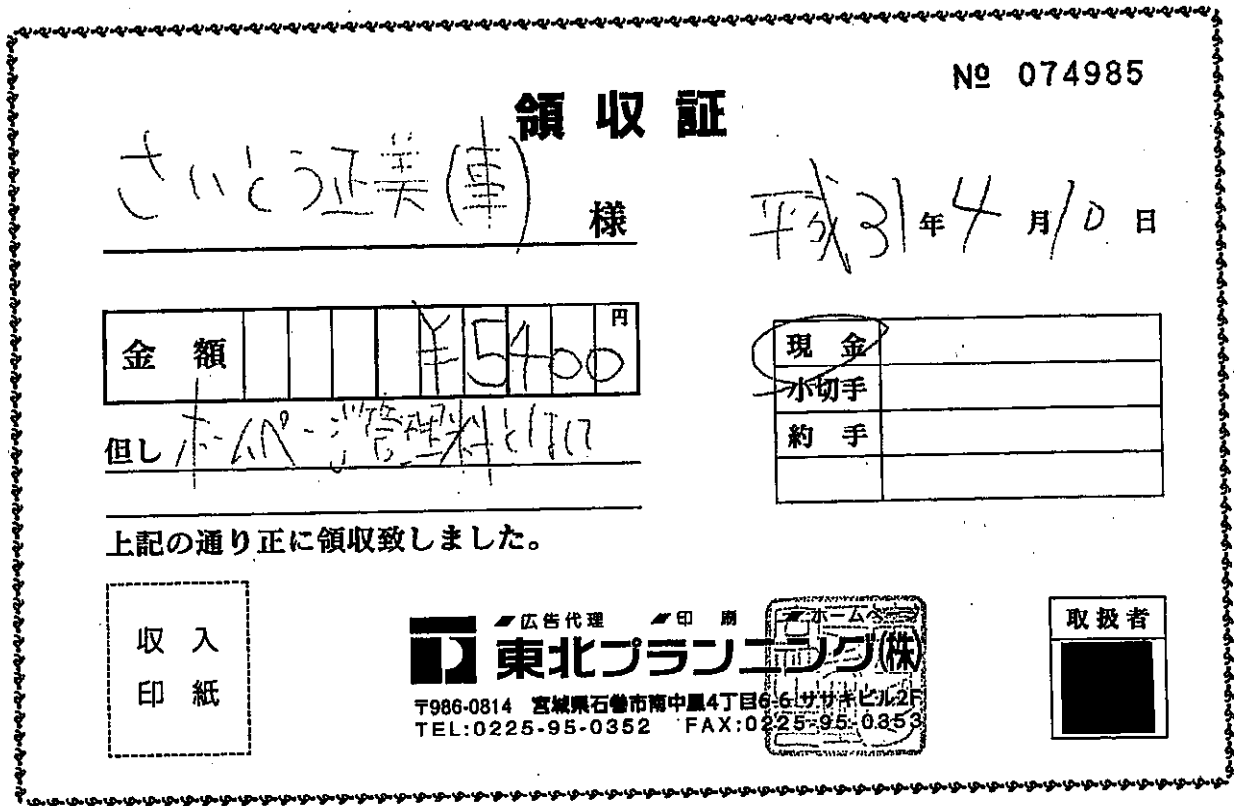 № 074985
領収証
さいとう正美(事) 様
平成31年4月10日
金額 ¥5400円
但し ホームページ管理料として
現金
小切手
約手
上記の通り正に領収致しました。
収入
印紙
広告代理 印刷 ホームページ
東北プランニング(株)
〒986-0814 宮城県石巻市南中里4丁目6-6 ササキビル2F
TEL:0225-95-0352 FAX:0225-95-0353
取扱者